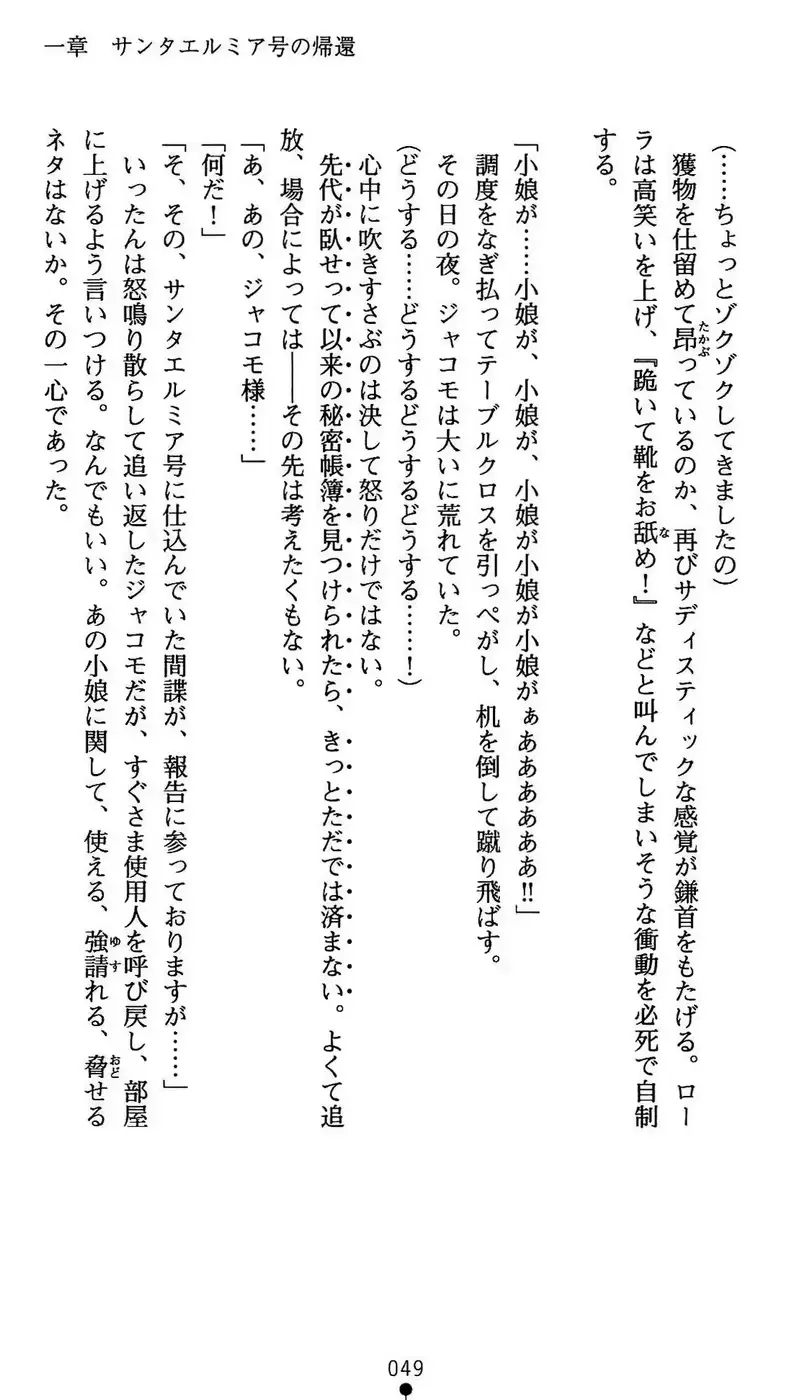 一章　サンタエルミア号の帰還
（……ちょっとゾクゾクしてきましたの）
　獲物を仕留めて昂っているのか、再びサディスティックな感覚が鎌首をもたげる。ロー
ラは高笑いを上げ、『跪いて靴をお舐め！』などと叫んでしまいそうな衝動を必死で自制
する。
「小娘が……小娘が、小娘が、小娘が小娘がぁああああああ!!」
　調度をなぎ払ってテーブルクロスを引っぺがし、机を倒して蹴り飛ばす。
　その日の夜。ジャコモは大いに荒れていた。
（どうする……どうするどうするどうする……！）
　心中に吹きすさぶのは決して怒りだけではない。
　先代が臥せって以来の秘密帳簿を見つけられたら、きっとただでは済まない。よくて追
放、場合によっては――その先は考えたくもない。
「あ、あの、ジャコモ様……」
「何だ！」
「そ、その、サンタエルミア号に仕込んでいた間諜が、報告に参っておりますが……」
　いったんは怒鳴り散らして追い返したジャコモだが、すぐさま使用人を呼び戻し、部屋
に上げるよう言いつける。なんでもいい。あの小娘に関して、使える、強請れる、脅せる
ネタはないか。その一心であった。
たかぶ
な
ゆす
おど
049